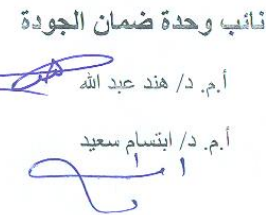 نائب وحدة ضمان الجودة
أ.م. د/ هند عبد الله
أ.م. د/ ابتسام سعيد